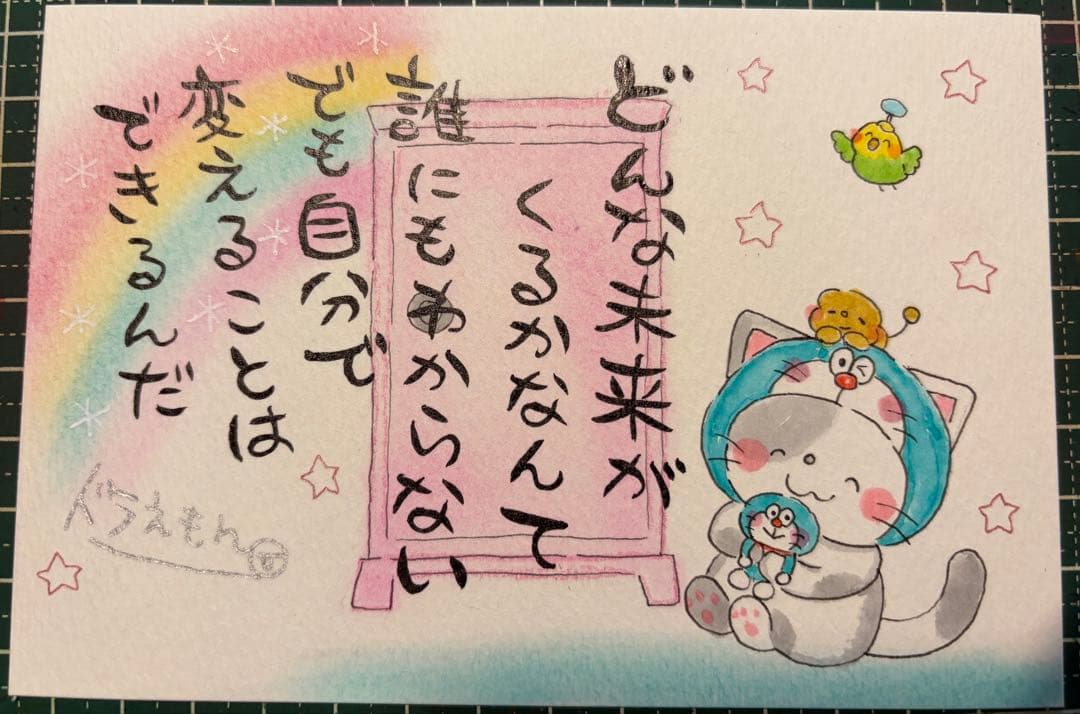 どんな未来が
くるかなんて
誰にもわからない
でも自分で
変えることは
できるんだ
ぐうえもん